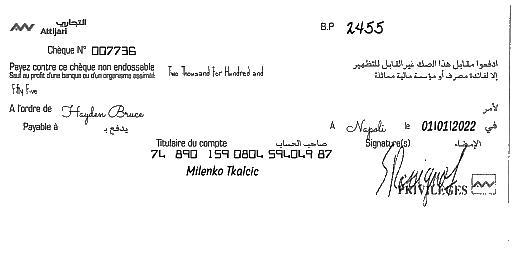 التجاري
Attijari
B.P 2455
Chèque N° 007736
Payez contre ce chèque non endossable
Sauf au profit d'une banque ou d'un organisme assimilé
Two Thousand for Hundred and
Fifty Five
ادفعوا مقابل هذا الصك غير القابل للتظهير
إلا لفائدة مصرف أو مؤسسة مالية مماثلة
A l'ordre de Hayden Bruce
لأمر
Payable à يدفع بـ
A Napoli le 01/01/2022 في
Titulaire du compte صاحب الحساب
Signature(s) الإمضاء
74 890 159 0804 594049 87
Milenko Tkalcic
PRIVILEGES